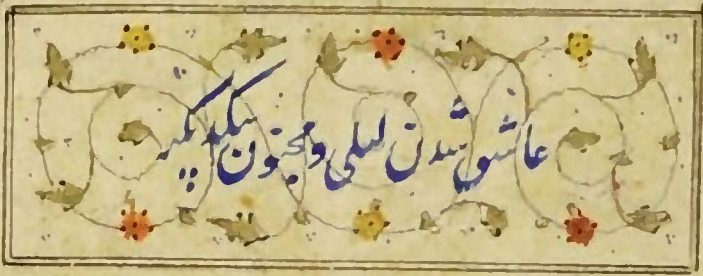 عاشق شدن لیلی و مجنون بیکدیگر